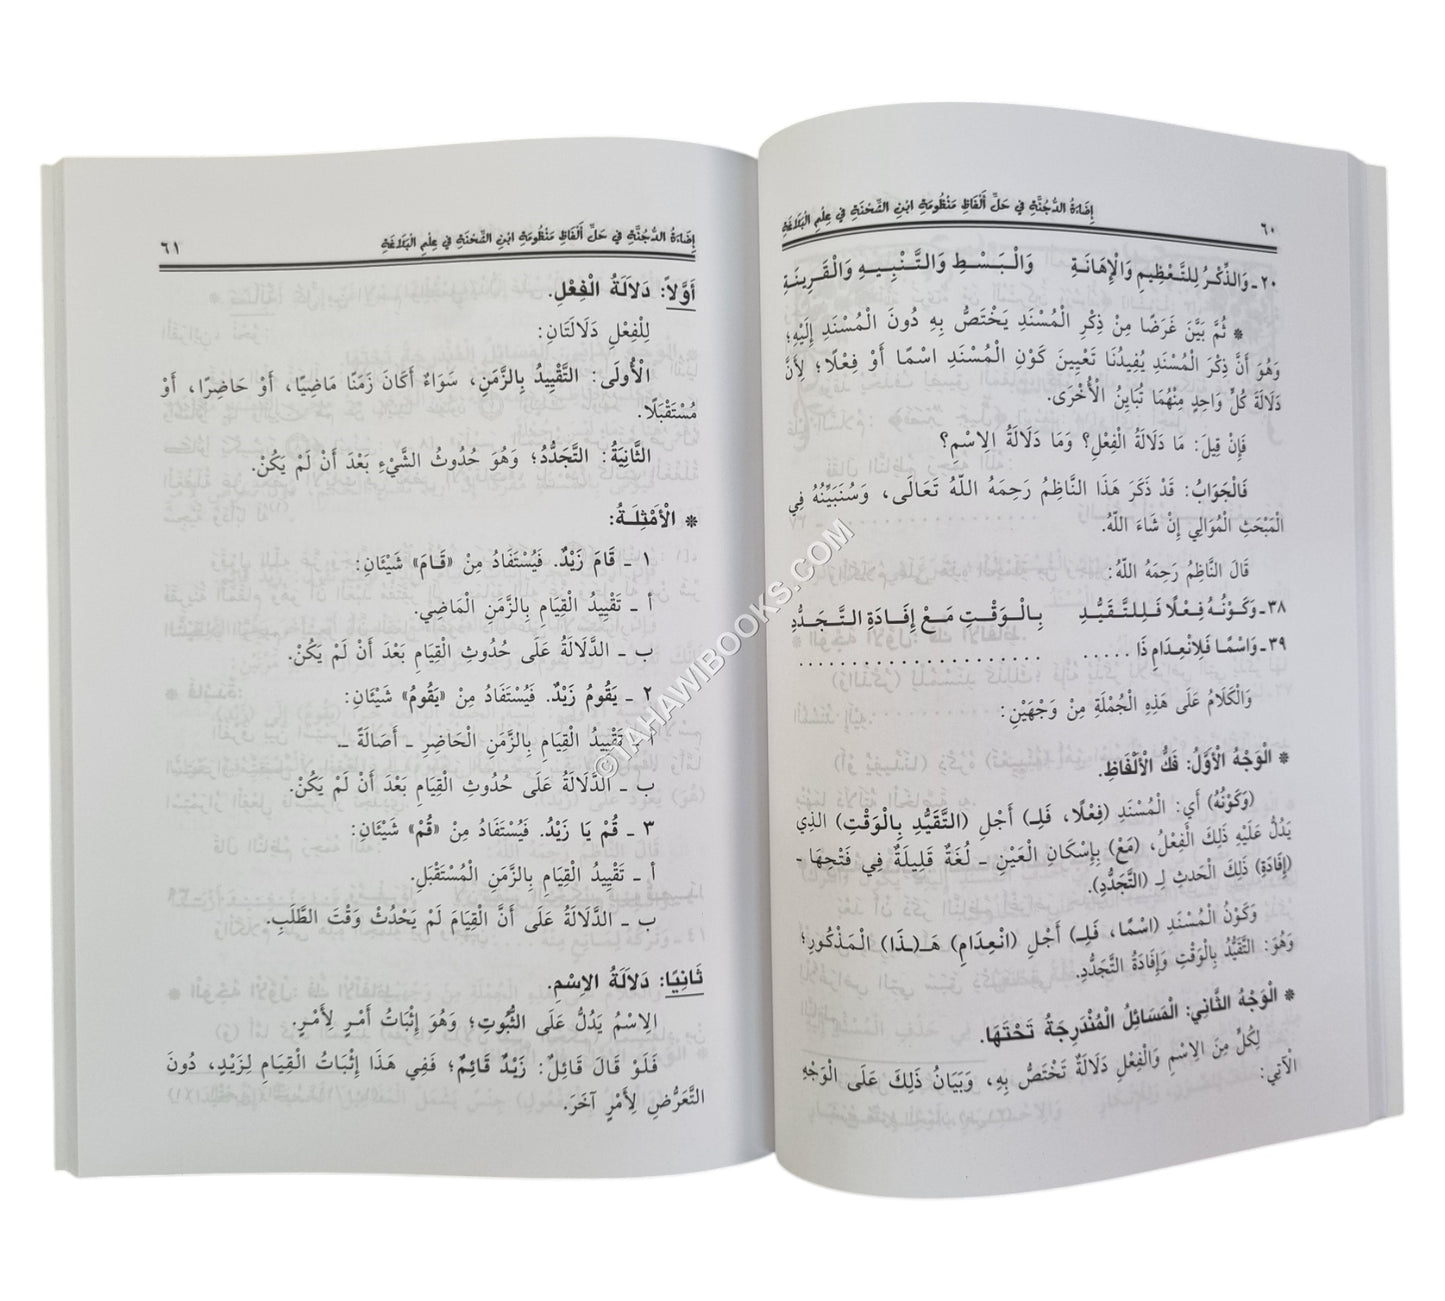 ٦٠ إِضَاءَةُ الدُّجُنَّةِ فِي حَلِّ أَلْفَاظِ مَنْظُومَةِ ابْنِ الشِّحْنَةِ فِي عِلْمِ الْبَلَاغَةِ
٢٠ـ وَالذِّكْرُ لِلتَّعْظِيمِ وَالْإِهَانَةِ وَالْبَسْطِ وَالتَّنْبِيهِ وَالْقَرِينَةِ
* ثُمَّ بَيَّنَ غَرَضًا مِنْ ذِكْرِ الْمُسْنَدِ يَخْتَصُّ بِهِ دُونَ الْمُسْنَدِ إِلَيْهِ؛
وَهُوَ أَنَّ ذِكْرَ الْمُسْنَدِ يُفِيدُنَا تَعْيِينَ كَوْنِ الْمُسْنَدِ اسْمًا أَوْ فِعْلًا؛ لِأَنَّ
دَلَالَةَ كُلِّ وَاحِدٍ مِنْهُمَا تُبَايِنُ الْأُخْرَى.
فَإِنْ قِيلَ: مَا دَلَالَةُ الْفِعْلِ؟ وَمَا دَلَالَةُ الِاسْمِ؟
فَالْجَوَابُ: قَدْ ذَكَرَ هَذَا النَّاظِمُ رَحِمَهُ اللّٰهُ تَعَالَى، وَسَنُبَيِّنُهُ فِي
الْمَبْحَثِ الْمُوَالِي إِنْ شَاءَ اللّٰهُ.
قَالَ النَّاظِمُ رَحِمَهُ اللّٰهُ:
٣٨ـ وَكَوْنُهُ فِعْلًا فَلِلتَّقَيُّدِ بِالْوَقْتِ مَعْ إِفَادَةِ التَّجَدُّدِ
٣٩ـ وَاسْمًا فَلِانْعِدَامِ ذَا ..... ......................
وَالْكَلَامُ عَلَى هَذِهِ الْجُمْلَةِ مِنْ وَجْهَيْنِ:
* الْوَجْهُ الْأَوَّلُ: فَكُّ الْأَلْفَاظِ.
(وَكَوْنُهُ) أَي: الْمُسْنَدِ (فِعْلًا، فَلِـ) أَجْلِ (التَّقَيُّدِ بِالْوَقْتِ) الذِي
يَدُلُّ عَلَيْهِ ذَلِكَ الْفِعْلُ، (مَعْ) بِإِسْكَانِ الْعَيْنِ - لُغَةٌ قَلِيلَةٌ فِي فَتْحِهَا -
(إِفَادَةِ) ذَلِكَ الْحَدَثِ لِـ (التَّجَدُّدِ).
وَكَوْنُ الْمُسْنَدِ (اسْمًا، فَلِـ) أَجْلِ (انْعِدَامِ) هَـ(ـذَا) الْمَذْكُورِ؛
وَهُوَ: التَّقَيُّدُ بِالْوَقْتِ وَإِفَادَةُ التَّجَدُّدِ.
* الْوَجْهُ الثَّانِي: الْمَسَائِلُ الْمُنْدَرِجَةُ تَحْتَهَا.
لِكُلٍّ مِنَ الِاسْمِ وَالْفِعْلِ دَلَالَةٌ تَخْتَصُّ بِهِ، وَبَيَانُ ذَلِكَ عَلَى الْوَجْهِ
الْآتِي:
إِضَاءَةُ الدُّجُنَّةِ فِي حَلِّ أَلْفَاظِ مَنْظُومَةِ ابْنِ الشِّحْنَةِ فِي عِلْمِ الْبَلَاغَةِ ٦١
أَوَّلًا: دَلَالَةُ الْفِعْلِ.
لِلْفِعْلِ دَلَالَتَانِ:
الْأُولَى: التَّقْيِيدُ بِالزَّمَنِ، سَوَاءٌ أَكَانَ زَمَنًا مَاضِيًا، أَوْ حَاضِرًا، أَوْ
مُسْتَقْبَلًا.
الثَّانِيَةُ: التَّجَدُّدُ؛ وَهُوَ حُدُوثُ الشَّيْءِ بَعْدَ أَنْ لَمْ يَكُنْ.
* الْأَمْثِلَةُ:
١ ـ قَامَ زَيْدٌ. فَيُسْتَفَادُ مِنْ «قَامَ» شَيْئَانِ:
أ ـ تَقْيِيدُ الْقِيَامِ بِالزَّمَنِ الْمَاضِي.
ب ـ الدَّلَالَةُ عَلَى حُدُوثِ الْقِيَامِ بَعْدَ أَنْ لَمْ يَكُنْ.
٢ ـ يَقُومُ زَيْدٌ. فَيُسْتَفَادُ مِنْ «يَقُومُ» شَيْئَانِ:
أ ـ تَقْيِيدُ الْقِيَامِ بِالزَّمَنِ الْحَاضِرِ ـ أَصَالَةً ـ.
ب ـ الدَّلَالَةُ عَلَى حُدُوثِ الْقِيَامِ بَعْدَ أَنْ لَمْ يَكُنْ.
٣ ـ قُمْ يَا زَيْدُ. فَيُسْتَفَادُ مِنْ «قُمْ» شَيْئَانِ:
أ ـ تَقْيِيدُ الْقِيَامِ بِالزَّمَنِ الْمُسْتَقْبَلِ.
ب ـ الدَّلَالَةُ عَلَى أَنَّ الْقِيَامَ لَمْ يَحْدُثْ وَقْتَ الطَّلَبِ.
ثَانِيًا: دَلَالَةُ الِاسْمِ.
الِاسْمُ يَدُلُّ عَلَى الثُّبُوتِ؛ وَهُوَ إِثْبَاتُ أَمْرٍ لِأَمْرٍ.
فَلَوْ قَالَ قَائِلٌ: زَيْدٌ قَائِمٌ؛ فَفِي هَذَا إِثْبَاتُ الْقِيَامِ لِزَيْدٍ، دُونَ
التَّعَرُّضِ لِأَمْرٍ آخَرَ.
©TAHAWIBOOKS.COM